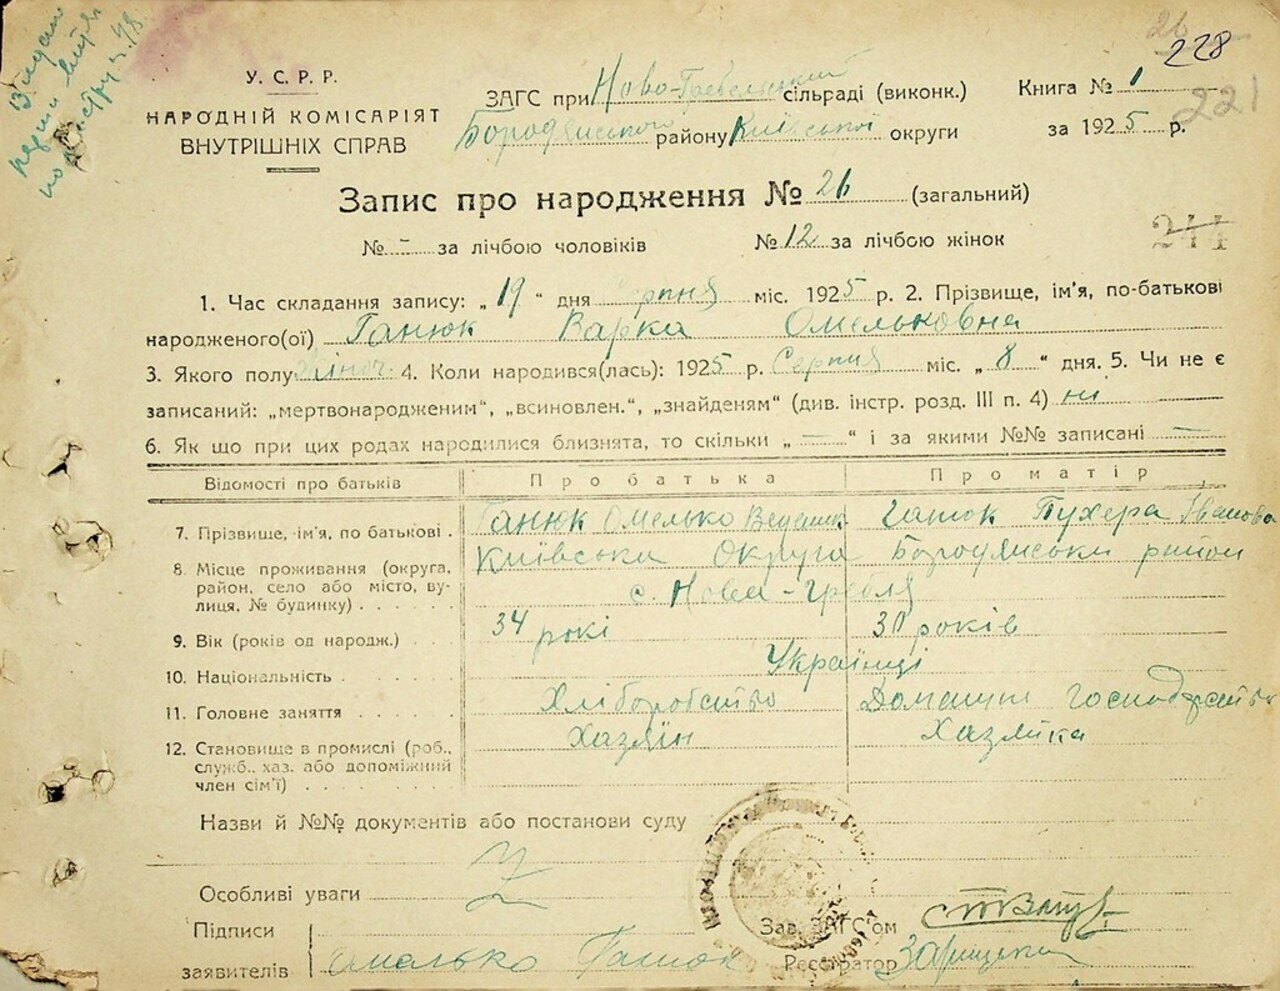 26
228
221
У. С. Р. Р.
НАРОДНІЙ КОМІСАРІЯТ
ВНУТРІШНІХ СПРАВ
ЗАГС при Ново-Гребельський сільраді (виконк.)
Бородянського району Київської округи
Книга № 1
за 1925 р.
Запис про народження № 26 (загальний)
№ - за лічбою чоловіків № 12 за лічбою жінок
244
1. Час складання запису: „19“ дня серпня міс. 1925 р. 2. Прізвище, ім'я, по-батькові
народженого(ої) Ганюк Варка Омельковна
3. Якого полу жіноч. 4. Коли народився(лась): 1925 р. Серпня міс. „8“ дня. 5. Чи не є
записаний: „мертвонародженим“, „всиновлен.“, „знайденям“ (див. інстр. розд. III п. 4) ні
6. Як що при цих родах народилися близнята, то скільки „—“ і за якими №№ записані —
Відомості про батьків Про батька Про матір
7. Прізвище, ім'я, по батькові . Ганюк Омелько Ганюк Іванова
8. Місце проживання (округа, Київська Округа Бородянськи район
район, село або місто, ву- с. Нова-гребля
лиця, № будинку) . . . . . .
9. Вік (років од народж.) . . . 34 рокі 30 років
10. Національність . . . . . . Українці
11. Головне заняття . . . . . . Хліборобство Домашнє господарство
12. Становище в промислі (роб., Хазяїн Хазяйка
служб., хаз. або допоміжний
член сім'ї) . . . . . . . .
Назви й №№ документів або постанови суду
Особливі уваги
Підписи
заявителів Омелько Ганюк
Зав. ЗАГС'ом
Реєстратор